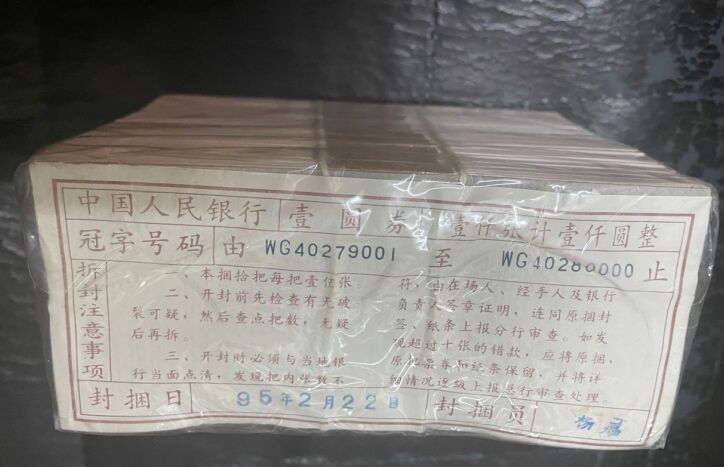 中国人民银行 壹圆券 壹仟张计壹仟圆整
冠字号码 由 WG40279001 至 WG40280000 止
拆封注意事项
一、本捆拾把每把壹佰张。
二、开封前先检查有无破
裂可疑，然后查点把数，无疑
后再拆。
三、开封时必须与当地银
行当面点清，发现把内张数不
符，由在场人、经手人及银行
负责人签章证明，连同原捆封
签、纸条上报分行审查。如发
现超过十张的错款，应将原捆、
原把票券和纸条保留，并将详
细情况逐级上报总行审查处理。
封捆日 95年2月22日 封捆员